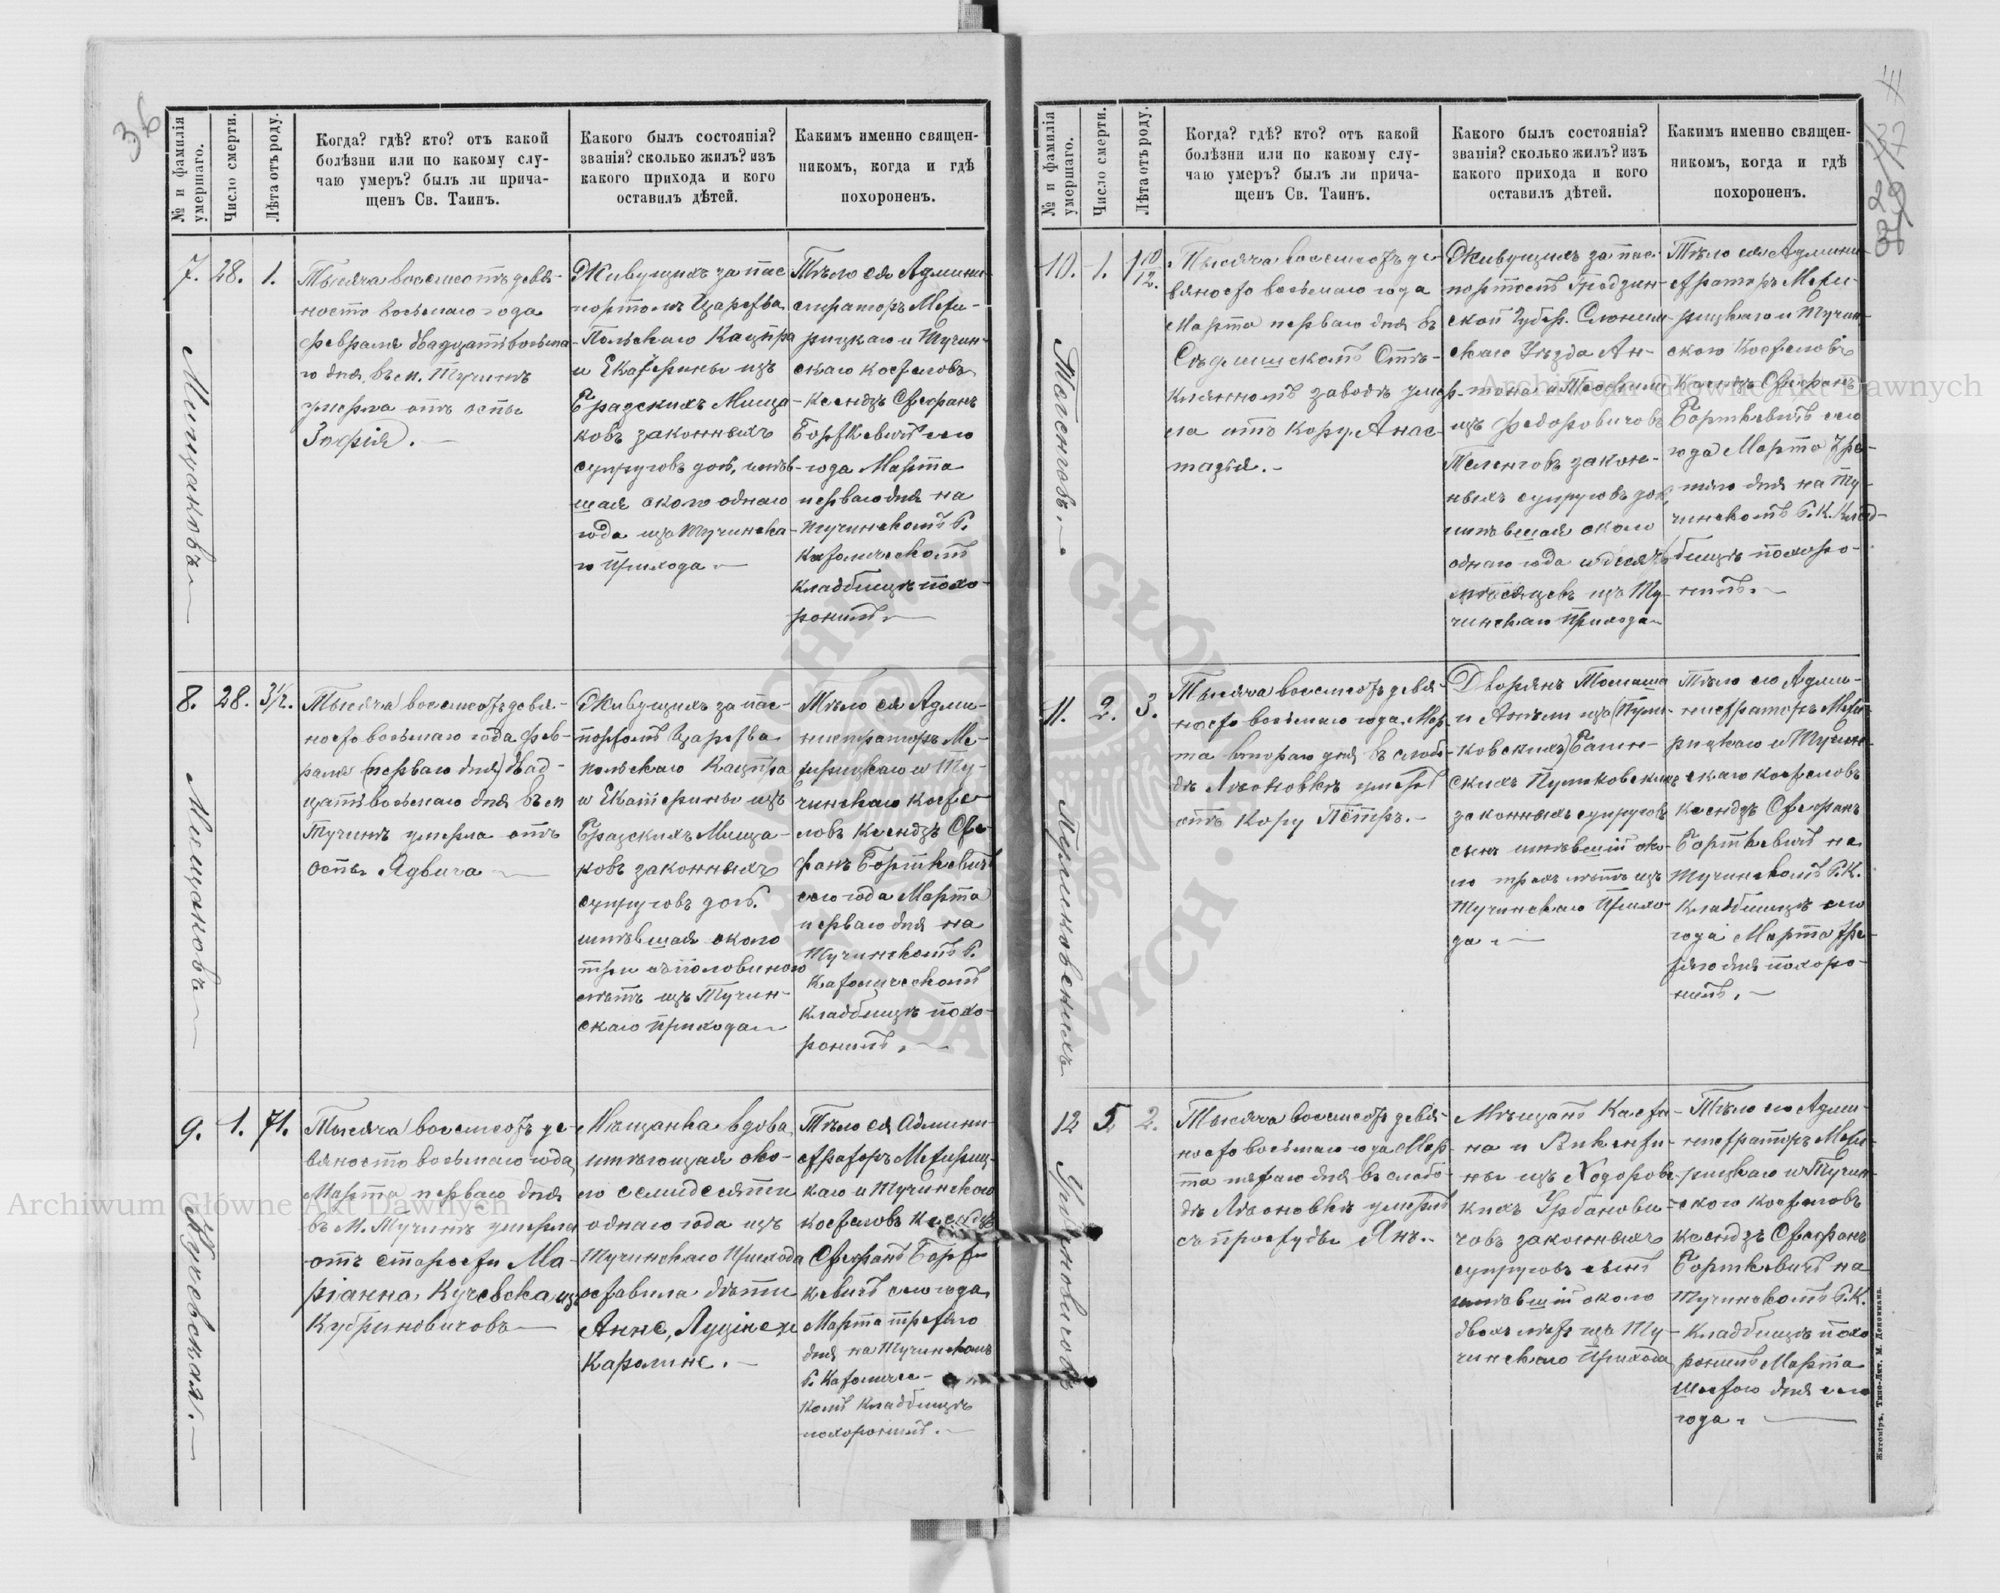 36
№ и фамилія умершаго.
Число смерти.
Лѣта отъ роду.
Когда? гдѣ? кто? отъ какой
болѣзни или по какому слу-
чаю умеръ? былъ ли прича-
щенъ Св. Таинъ.
Какого былъ состоянія?
званія? сколько жилъ? изъ
какого прихода и кого
оставилъ дѣтей.
Какимъ именно священ-
никомъ, когда и гдѣ
похороненъ.
7.
28.
1.
Тысяча восемьсотъ девя-
носто восьмаго года
февраля двадцать восьма-
го дня, въ м. Тучинѣ
умерла отъ оспы
Зофія.
Живущихъ за пас
портомъ Царства
Польскаго Кацпра
и Екатерины изъ
законныхъ
супруговъ доч. имѣв-
шая около одного
года изъ Тучинска-
го прихода
Тѣло ея Админи-
страторъ Межи-
рицкаго и Тучин-
скаго костеловъ
Ксендзъ Стефанъ
Борткевичъ сего
года Марта
перваго дня на
Тучинскомъ Р.
Католическомъ
кладбищѣ похо-
ронилъ
8.
28.
3½.
Тысяча восемьсотъ девя-
носто восьмаго года фев-
раля (перваго дня) двад-
цать восьмаго дня въ м
Тучинѣ умерла отъ
оспы Ядвига
Живущихъ за пас-
портомъ Царства
Польскаго Кацпра
и Екатерины изъ
законныхъ
супруговъ доч.
имѣвшая около
три съ половиною
лѣтъ изъ Тучин-
скаго прихода
Тѣло ея Адми-
нистраторъ Ме-
жирицкаго и Ту-
чинскаго косте
ловъ Ксендзъ Сте-
фанъ Борткевичъ
сего года Марта
перваго дня на
Тучинскомъ Р.
Католическомъ
кладбищѣ похо-
ронилъ.
9.
1.
71.
Кучевская.
Тысяча восемьсотъ де-
вяносто восьмаго года
Марта перваго дня
въ М. Тучинѣ умерла
отъ старости Ма-
ріанна Кучевска изъ
Кубриновичовъ
Мѣщанка вдова,
имѣющая око-
ло семидесяти
одного года изъ
Тучинскаго прихода
оставила дѣти
Анне,
Каролине.
Тѣло ея Админи-
страторъ Межириц-
каго и Тучинскаго
костеловъ Ксендзъ
Стефанъ Борт-
кевичъ сего года
Марта третьяго
дня на Тучинскомъ
Р. Католичес-
комъ кладбищѣ
похоронилъ.
37
29
№ и фамилія умершаго.
Число смерти.
Лѣта отъ роду.
Когда? гдѣ? кто? отъ какой
болѣзни или по какому слу-
чаю умеръ? былъ ли прича-
щенъ Св. Таинъ.
Какого былъ состоянія?
званія? сколько жилъ? изъ
какого прихода и кого
оставилъ дѣтей.
Какимъ именно священ-
никомъ, когда и гдѣ
похороненъ.
10.
1.
1 10/12.
Тысяча восемьсотъ де-
вяносто восьмаго года
Марта перваго дня въ
заводѣ умер-
ла отъ кору Анас-
тазія.
Живущихъ за пас
портомъ Гродзин-
ской Губер. Слоним
скаго Уѣзда Ан-
тона и Теофили
изъ Федоровичовъ
закон-
ныхъ супруговъ доч
имѣвшая около
одного года и десять
мѣсяцевъ изъ Ту-
чинскаго прихода
Тѣло ея Админи-
страторъ Межи-
рицкаго и Тучин-
ского Костеловъ
Ксендзъ Стефанъ
Борткевичъ сего
года Марта тре-
тяго дня на Ту-
чинскомъ Р. К. клад-
бищѣ похоро-
нилъ.
11.
2.
3.
Тысяча восемьсотъ девя-
носто восьмаго года Мар-
та втораго дня въ слобо-
дѣ Льяновкѣ умеръ
отъ кору Пётръ.
Дворянъ Томаша
и
законныхъ супруговъ
сынъ имѣвшій око-
ло трехъ лѣтъ изъ
Тучинскаго Прихо-
да.
Тѣло его Адми-
нистраторъ Межи-
рицкаго и Тучин-
скаго костеловъ
ксендзъ Стефанъ
Борткевичъ на
Тучинскомъ Р. К.
кладбищѣ сего
года Марта тре-
тяго дня похоро-
нилъ.
12
5
2.
Урбановичовъ
Тысяча восемьсотъ девя-
носто восьмаго года Мар-
та пятаго дня въ слобо-
дѣ Льяновкѣ умеръ
съ простуды Янъ.
Мѣщанъ Каета-
на и Викенти-
ны изъ Ходоровс
кихъ Урбанови-
човъ законныхъ
супруговъ сынъ
имѣвшій около
двохъ лѣтъ изъ Ту-
чинскаго Прихода
Тѣло его Адми-
нистраторъ Межи-
рицкаго и Тучин-
ского костеловъ
ксендзъ Стефанъ
Борткевичъ на
Тучинскомъ Р. К.
кладбищѣ похо
ронилъ Марта
шестого дня сего
года.
Житоміръ. Типо-Лит. М. Дененмана.
Archiwum Główne Akt Dawnych
Archiwum Główne Akt Dawnych
ARCHIWUM GŁÓWNE AKT DAWNYCH